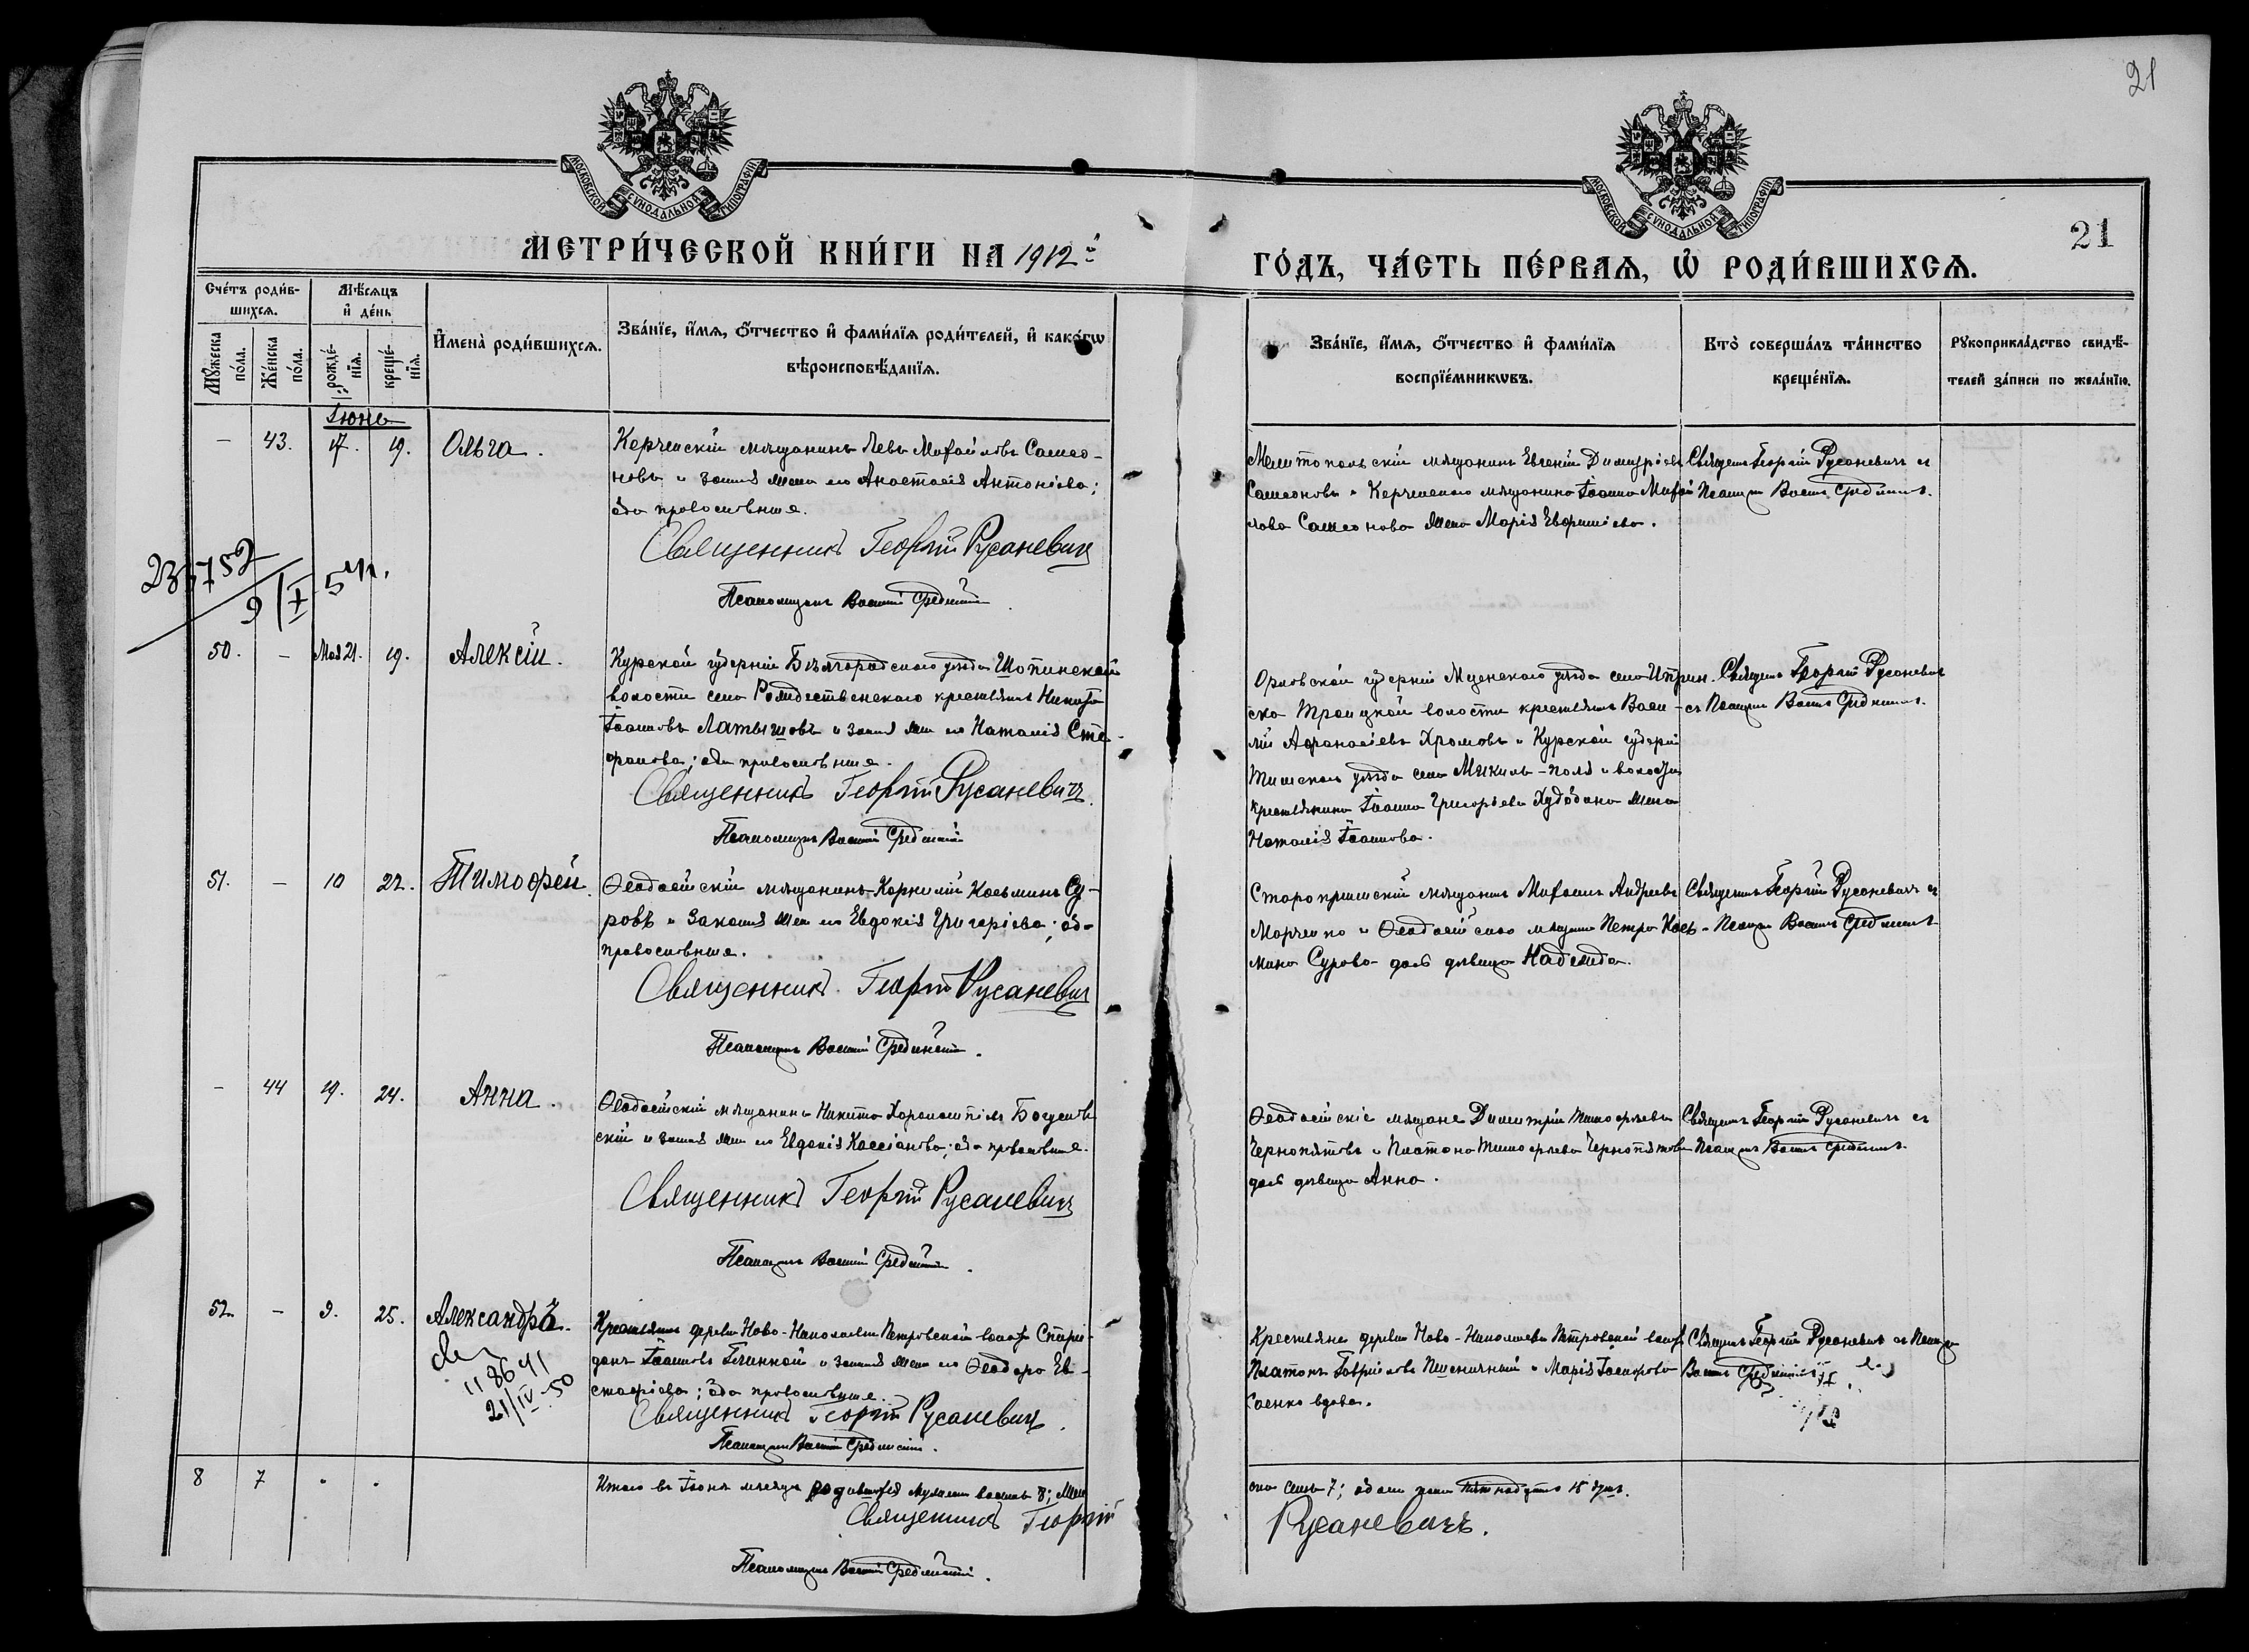 21
МОСКОВСКОЙ СУНОДАЛЬНОЙ ТИПОГРАФІИ
МОСКОВСКОЙ СУНОДАЛЬНОЙ ТИПОГРАФІИ
МЕТРИ́ЧЕСКОЙ КНИ́ГИ НА 1912й
ГО́ДЪ, ЧА́СТЬ ПЕ́РВАЯ, Ѡ РОДИ́ВШИХСЯ.
21
Сче́тъ роди́в-
шихся.
Мѣ́сяцъ
и де́нь
Му́жеска
по́ла.
Же́нска
по́ла.
рожде́-
нїя.
креще́-
нїя.
Имена̀ роди́вшихся.
Зва́нїе, и́мя, о́тчество и фами́лїя роди́телей, и како́гѡ
вѣроисповѣ́данїя.
Зва́нїе, и́мя, о́тчество и фами́лїя
воспрїе́мникѡвъ.
Кто̀ соверша́лъ та́инство
креще́нїя.
Рукоприкла́дство свидѣ́-
телей за́писи по жела́нїю.
Іюнь
– 43. 17. 19. Ольга.
Керченскій мѣщанинъ Левъ Михайловъ Самсо-
новъ и законная жена его Анастасія Антоніева;
оба православные.
Священникъ Георгій Русаневичъ
Псаломщикъ Василій Срединскій
Мелитопольскій мѣщанинъ Евгеній Димитріевъ
Самсоновъ и Керченскаго мѣщанина Іоанна Михай
лова Самсонова жена Марія Евфиміева.
Священ. Георгій Русаневичъ съ
Псаломщ. Васил. Срединскимъ.
235752
9/I 54г.
50. – Мая 21. 19. Алексій.
Курской губерніи Бѣлгородскаго уѣзда Шопинской
волости села Рождественскаго крестьянинъ Никита
Іоанновъ Латышовъ и законная жена его Наталія Сте-
фанова; оба православные.
Священникъ Георгій Русаневичъ.
Псаломщикъ Василій Срединскій
Орловской губерніи Мценскаго уѣзда села
ско Троицкой волости крестьянинъ Васи-
лій Афанасіевъ Хромовъ и Курской губерніи
Тимскаго уѣзда села и волости
крестьянина Іоанна Григорьева жена
Наталія Іоаннова.
Священ. Георгій Русаневичъ
съ Псаломщ. Васил. Срединскимъ.
51. – 10 22. Тимофей.
Ѳеодосійскій мѣщанинъ Корнилій Косьминъ Су-
ровъ и законная жена его Евдокія Григоріева; оба
православные.
Священникъ Георгій Русаневичъ
Псаломщикъ Василій Срединскій.
Старокрымскій мѣщанинъ Михаилъ Андреевъ
Марченко и Ѳеодосійскаго мѣщан. Петра Кось-
мина Сурова дочь дѣвица Надежда.
Священ. Георгій Русаневичъ съ
Псаломщ. Васил. Срединскимъ
– 44 19. 24. Анна.
Ѳеодосійскій мѣщанинъ Никита Харалампіевъ
скій и законная жена его Евдокія Кассіанова; оба православные.
Священникъ Георгій Русаневичъ
Псаломщикъ Василій Срединскій.
Ѳеодосійскіе мѣщане Димитрій Тимофеевъ
Чернопятовъ и Платона Тимофеева Чернопятова
дочь дѣвица Анна.
Священ. Георгій Русаневичъ съ
Псаломщ. Васил. Срединскимъ.
52. – 9. 25. Александръ.
118641
21/IV-50
Крестьянинъ деревни Ново-Николаевки Петровской волости Спири-
донъ Іоанновъ Глинкой и законная жена его Ѳеодора Ев-
стафіева; оба православные.
Священникъ Георгій Русаневичъ.
Псаломщикъ Василій Срединскій.
Крестьяне деревни Ново-Николаевки Петровской волости
Платонъ Гавріиловъ Пшеничный и Марія
Саенко вдова.
Священ. Георгій Русаневичъ съ Псаломщ.
Васил. Срединскимъ
8 7 " "
Итого въ Іюнѣ мѣсяцѣ родившихся мужескаго восемь 8; жен
скаго семь 7; обоего пола пятнадцать 15 душъ.
Священникъ Георгій
Русаневичъ.
Псаломщикъ Василій Срединскій.